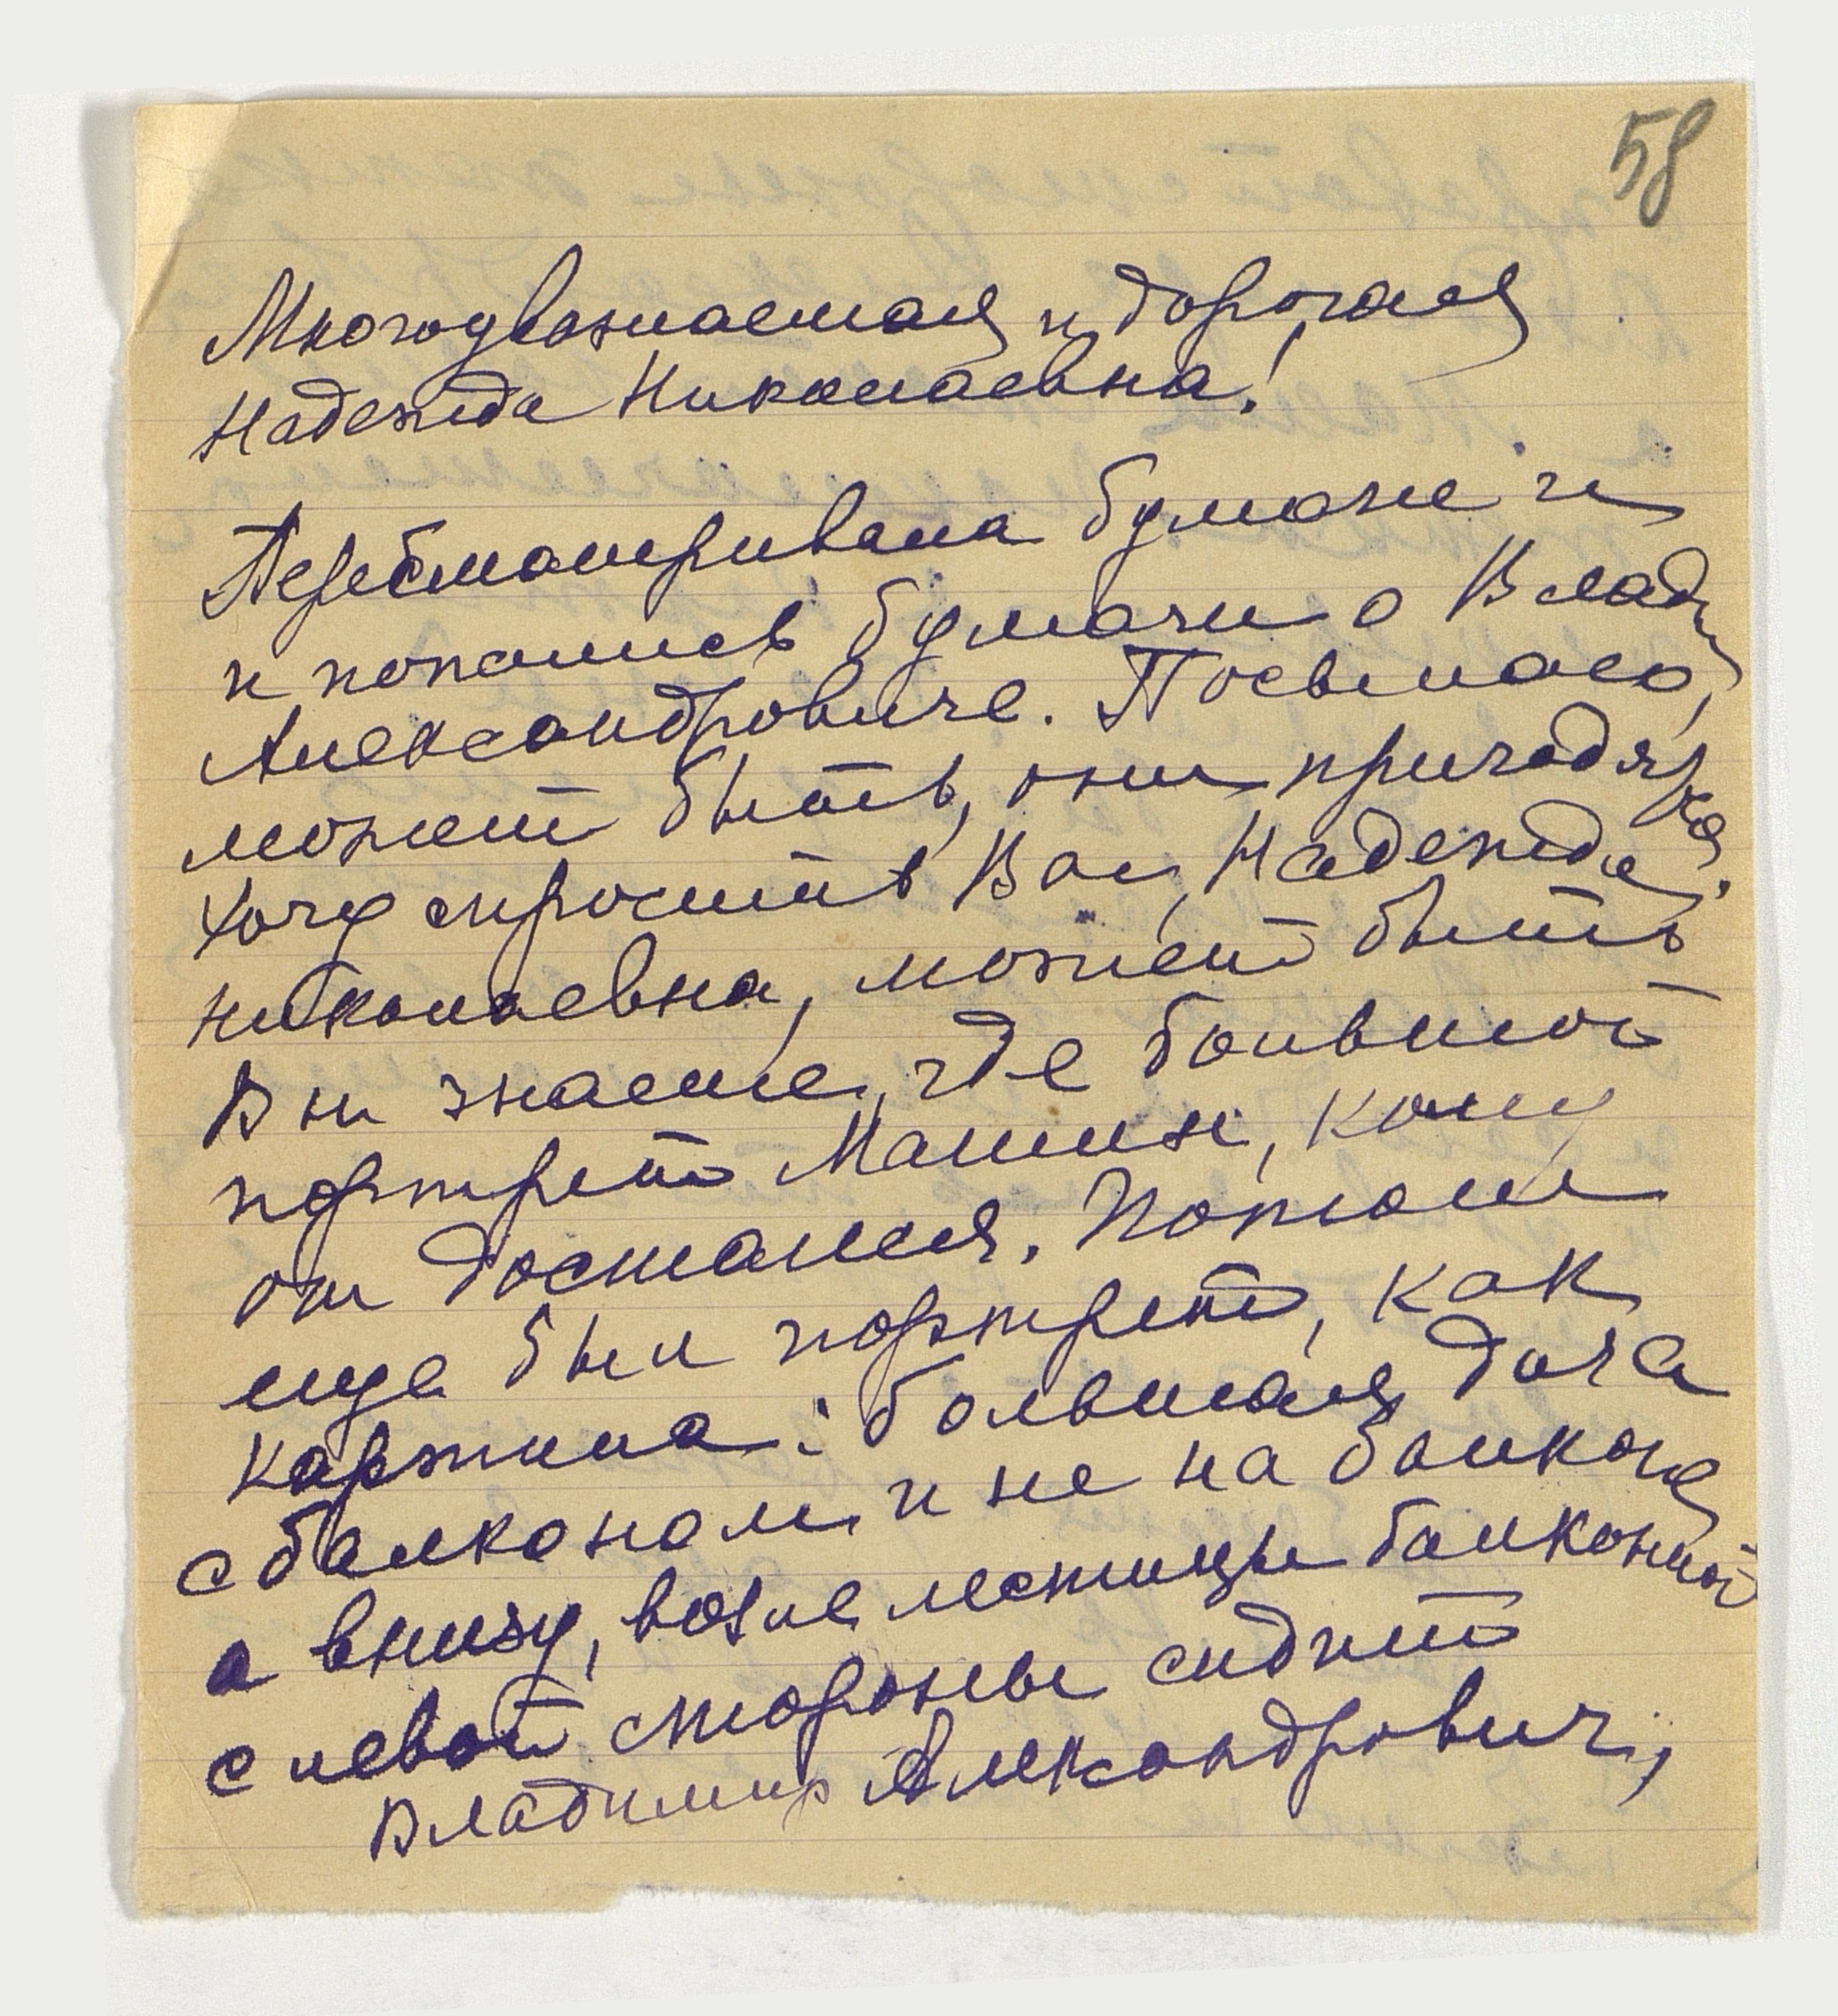 58
Многоуважаемая и дорогая
Надежда Николаевна!
Пересматривала бумаги и
и попались бумаги о Влади
Александровиче. Посылаю,
может быть, они пригодятся.
Хочу спросить Вас, Надежда
Николаевна, может быть
Вы знаете, где большой
портрет Машин, кому
он достался. Потом
еще был портрет, как
картина: большая дача
с балконом и не на балкону
а внизу, возле лестницы балконной
с левой стороны сидит
Владимир Александрович,